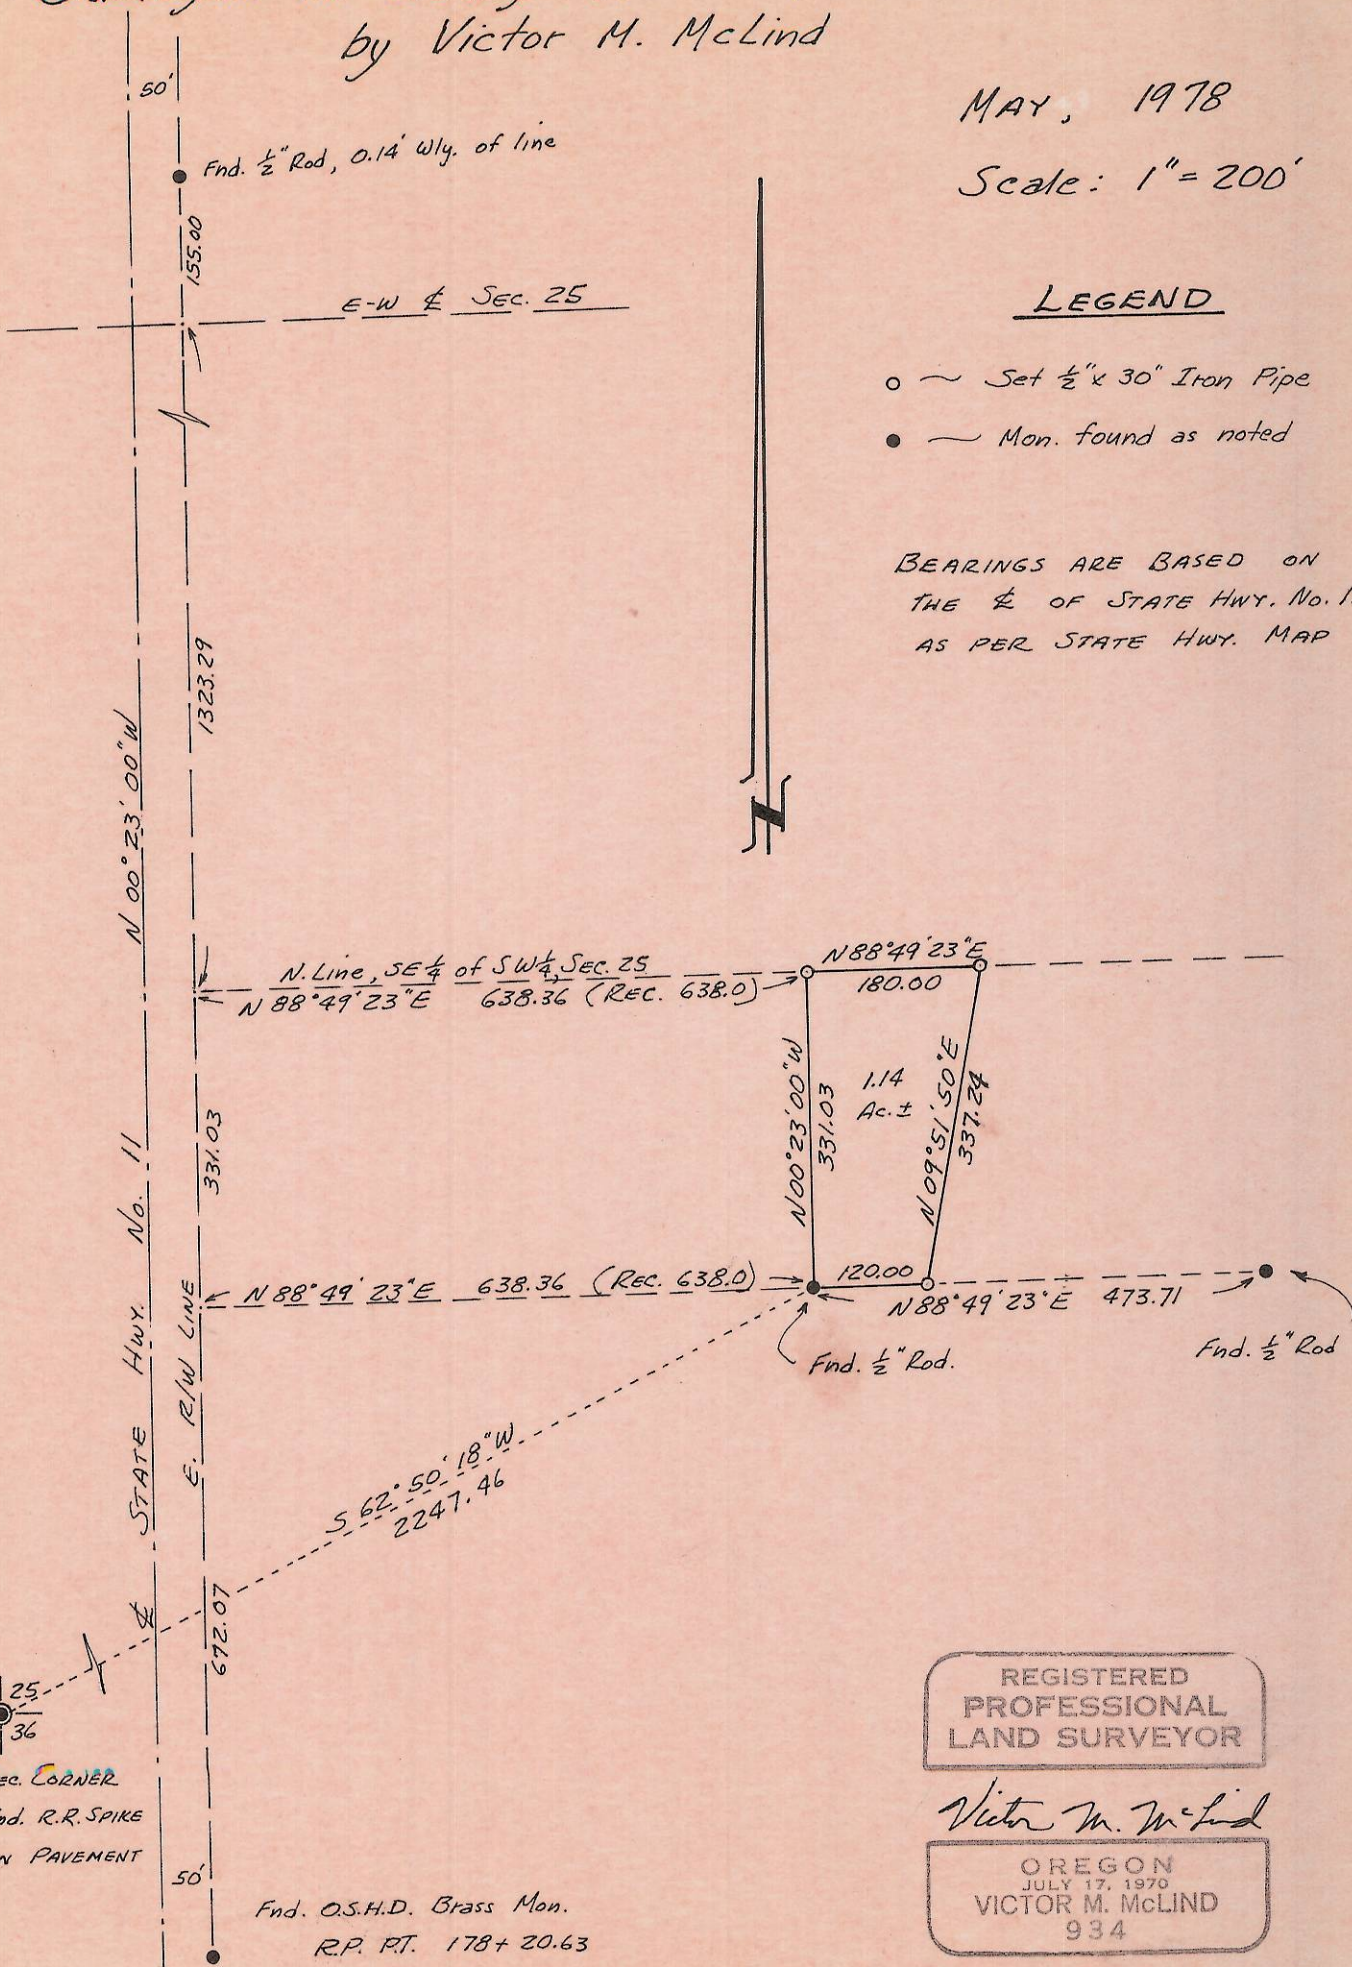 by Victor M. McLind
MAY, 1978
Scale: 1" = 200'
50'
Fnd. ½" Rod, 0.14' Wly. of line
155.00
E-W ℄ SEC. 25
LEGEND
○ ~ Set ½" x 30" Iron Pipe
● — Mon. found as noted
BEARINGS ARE BASED ON
THE ℄ OF STATE HWY. No. 1
AS PER STATE HWY. MAP
1323.29
N 00° 23' 00" W
N
N. Line, SE ¼ of SW ¼, SEC. 25
N 88° 49' 23" E 638.36 (REC. 638.0)
N 88° 49' 23" E
180.00
N 00° 23' 00" W
331.03
1.14
Ac. ±
N 09° 51' 50" E
337.24
331.03
℄ STATE HWY. No. 11
E. R/W LINE
N 88° 49' 23" E 638.36 (REC. 638.0)
120.00
N 88° 49' 23" E 473.71
Fnd. ½" Rod.
Fnd. ½" Rod
S 62° 50' 18" W
2247.46
672.07
25
36
EC. CORNER
nd. R.R. SPIKE
N PAVEMENT
50'
Fnd. O.S.H.D. Brass Mon.
R.P. P.T. 178 + 20.63
REGISTERED
PROFESSIONAL
LAND SURVEYOR
Victor M. McLind
OREGON
JULY 17, 1970
VICTOR M. McLIND
934